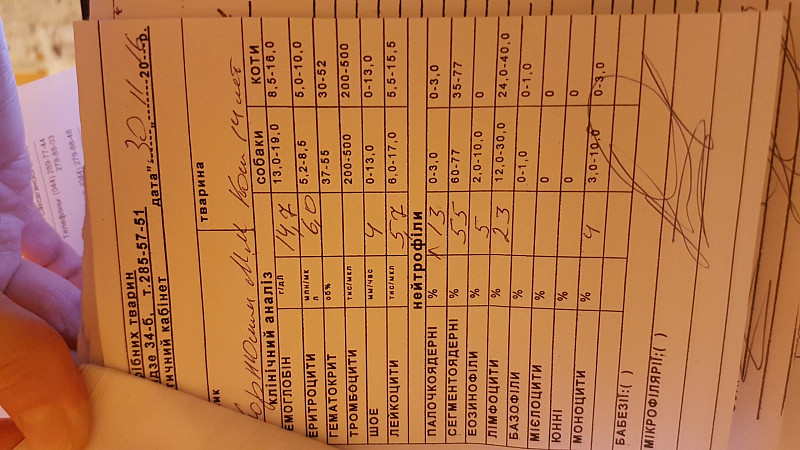 рібних тварин
дзе 34-б, т.285-57-51
тичний кабінет дата 30 11 16 20 р.
ик тварина
Кот 14 лет
клінічний аналіз собаки коти
ЕМОГЛОБІН г/дл 14,7 13,0-19,0 8,5-16,0
ЕРИТРОЦИТИ млн/мкл 6,0 5,2-8,5 5,0-10,0
ГЕМАТОКРИТ об% 37-55 30-52
ТРОМБОЦИТИ тис/мкл 200-500 200-500
ШОЕ мм/час 4 0-13,0 0-13,0
ЛЕЙКОЦИТИ тис/мкл 5,7 6,0-17,0 5,5-15,5
нейтрофіли
ПАЛОЧКОЯДЕРНІ % 13 0-3,0 0-3,0
СЕГМЕНТОЯДЕРНІ % 55 60-77 35-77
ЕОЗИНОФІЛИ % 5 2,0-10,0 0
ЛІМФОЦИТИ % 23 12,0-30,0 24,0-40,0
БАЗОФІЛИ % 0-1,0 0-1,0
МІЄЛОЦИТИ % 0 0
ЮННІ % 0 0
МОНОЦИТИ % 4 3,0-10,0 0-3,0
БАБЕЗІЇ:( )
МІКРОФІЛЯРІЇ:( )